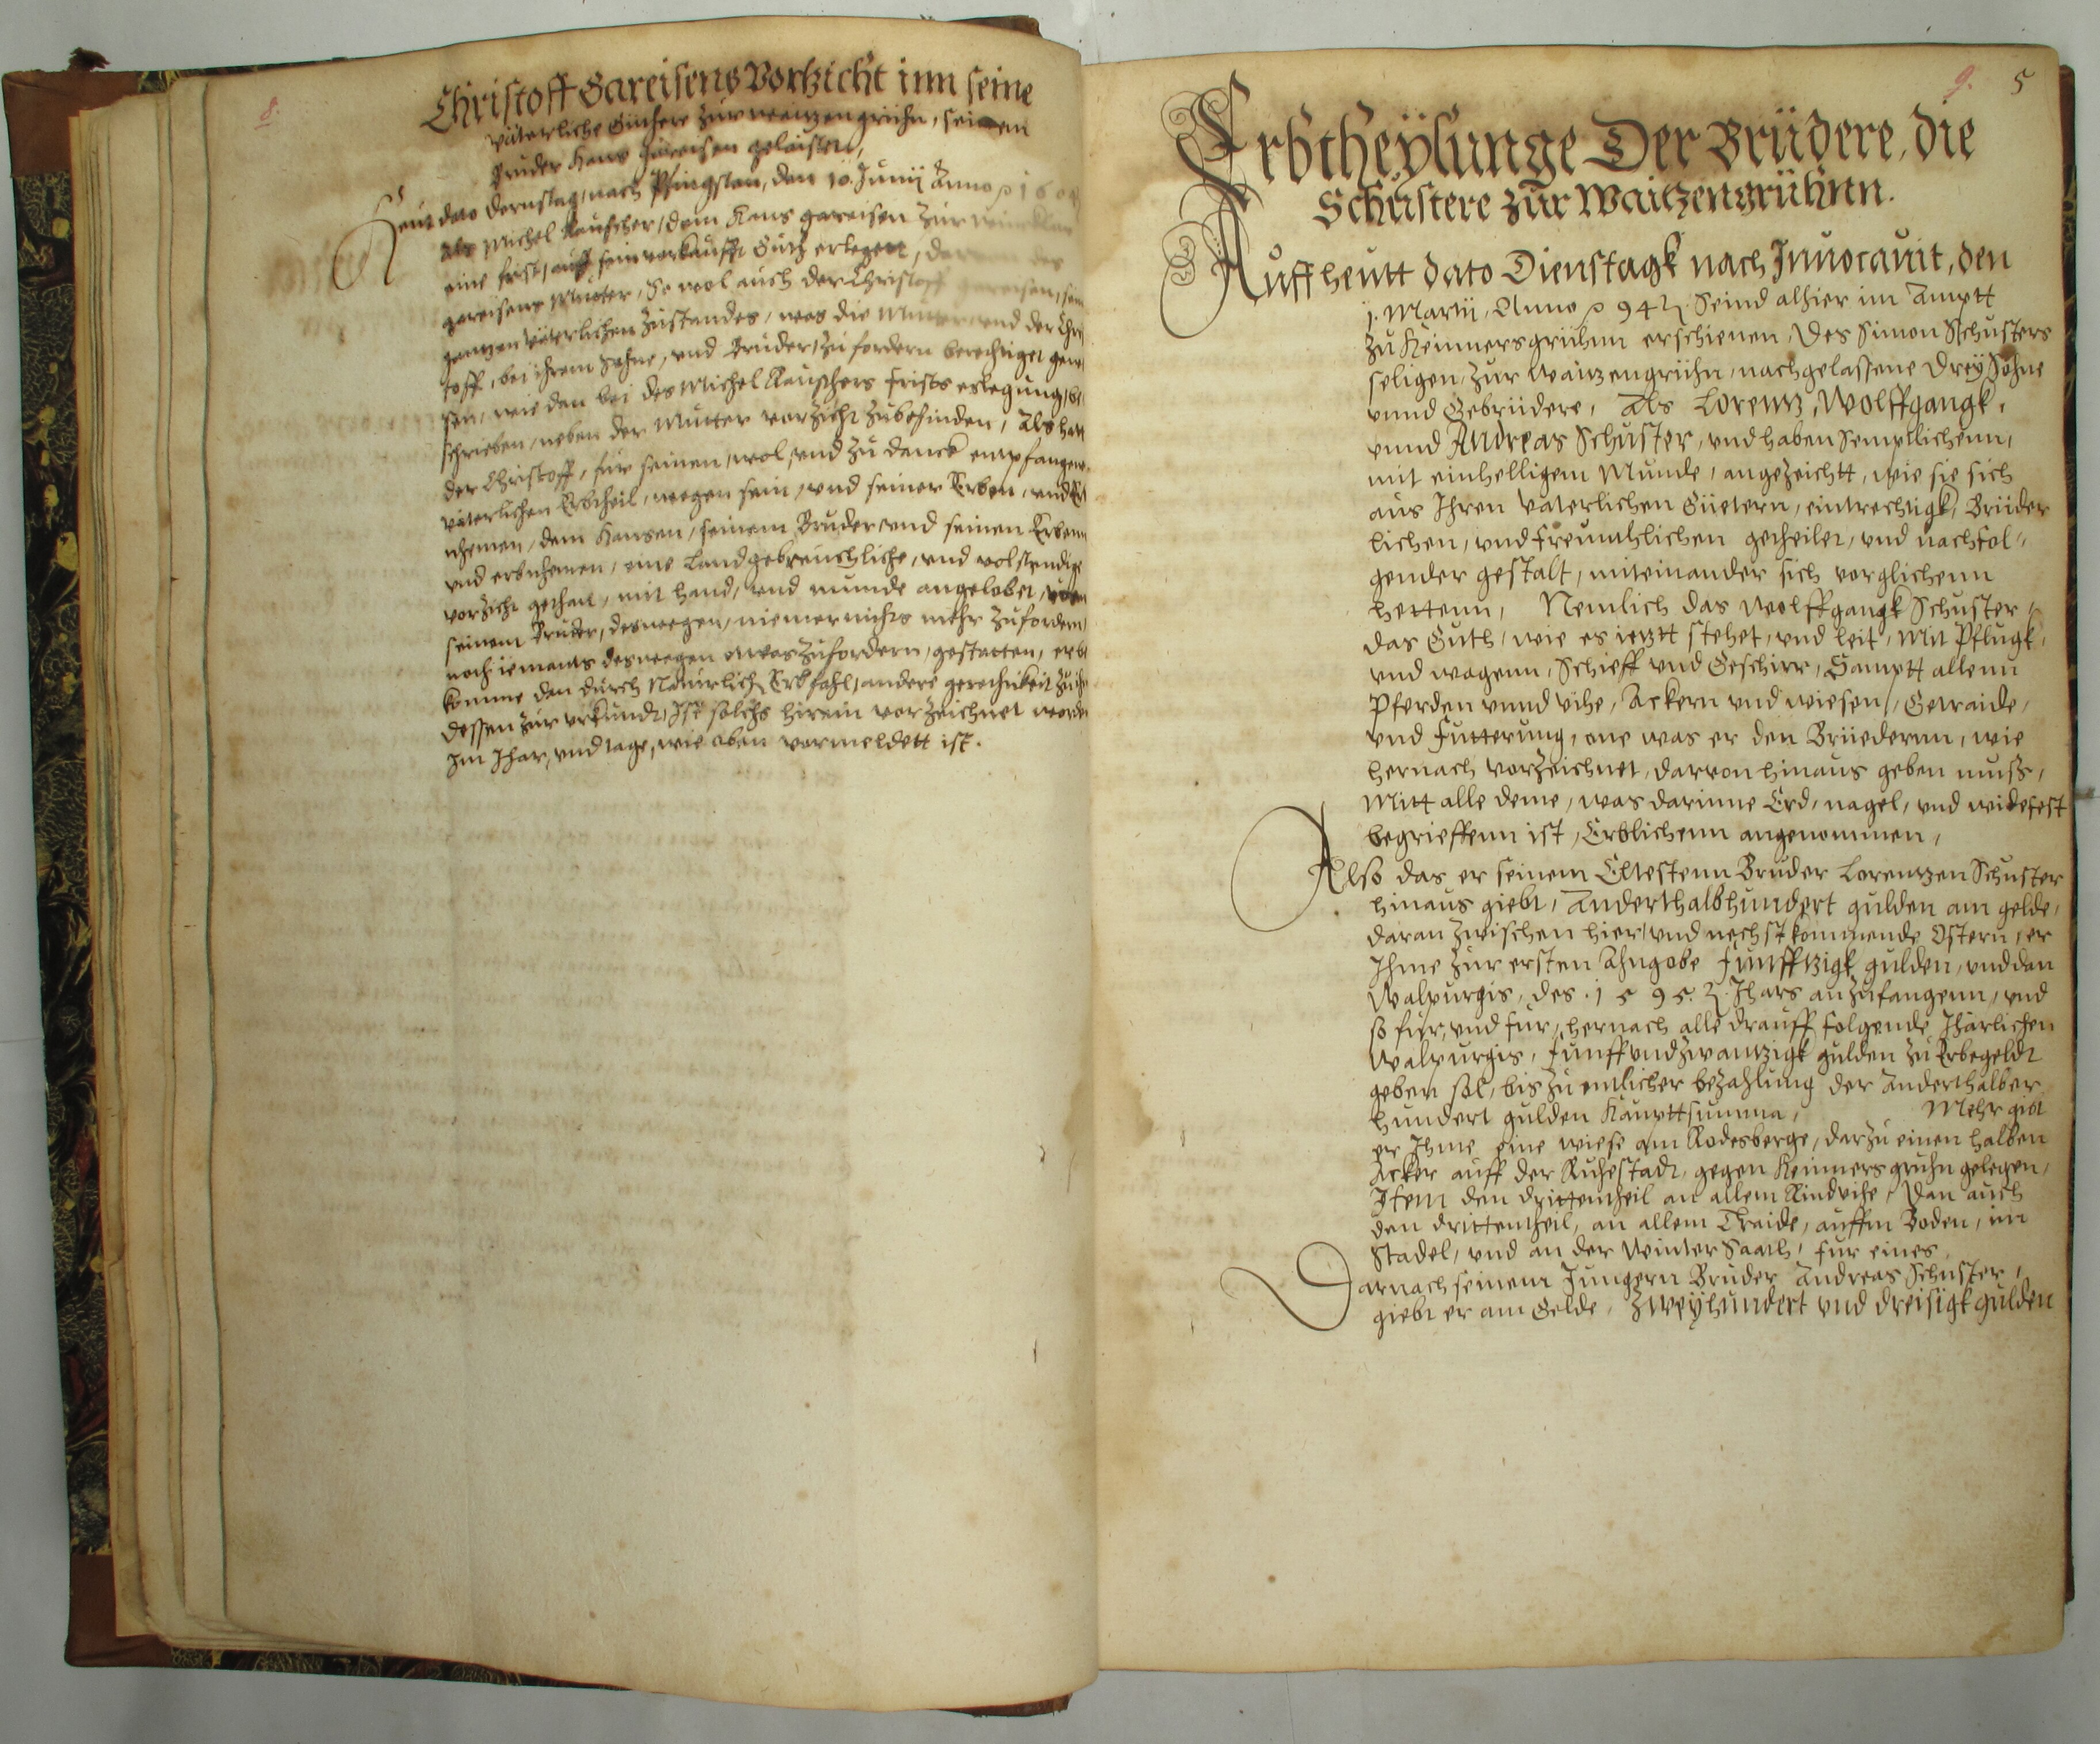 8.
Christoff Gareisens Vorzicht inn seine
väterliche Güthere zur waizengrühn, seinem
Bruder Hans Gareisen gelaisten,
Heut dato Dornstag nach Pfingsten, den 10. Junij Anno
als Michel Rauscher, dem Hans gareisen zur
eine frist, auff sein vorkaufft Guth erleget,
gareisens Mutter, So wol auch der Christoff gareisen, sein
gantzen väterlichen zustandes, was die Mutter und der Chri
stoff, bei ihrem Sohne, und Bruder, zu fordern berechtiget gewe
sen, wie dan bei des Michel Rauschers frists erlegung, be
schrieben, neben der Mutter vorzicht zubefinden, Als hatt
der Christoff, für seinen, wol, und zu danck empfangen
väterlichen Erbtheil, wegen sein, und seiner Erben, und Erb
nhemen, dem Hansen, seinem Bruder und seinen Erbenn
und erbnhemen, eine Landgebreuchliche, und volstendige
vorzicht gethan, mit hand, und munde angelobet, von
seinem Bruder, deswegen, niemer nichts mehr zufordern,
noch iemants deswegen etwas zufordern, gestatten, er be
komme dan durch Natürlich Erbfahl, andere gerechtikeit zu ihm
dessen zur urkundt, Ist solchs hirein vorzeichnet worden
Im Jhar, und tage, wie oben vormeldett ist.
9. 5
Erbtheÿlunge Der Brüdere, die
Schustere zur Waitzengrühnn.
Auff heutt dato Dienstagk nach Inuocauit, den
j. Martij, Anno 94 Seind alhier im Amptt
zu Reimersgrühnn erschienen, des Simon Schusters
seligen, zur Waizengrühn, nachgelassene Dreÿ Söhne
vnnd Gebrüdere, Als Lorentz, Wolffgangk,
vnnd Andreas Schuster, vnd haben semptlichenn,
mit einhelligem Munde, angezeichtt, wie sie sich
aus Ihren väterlichen Güetern, eintrechtigk, Brüder
lichen, vnd freuntlichen getheilet, vnd nachfol-
gender gestalt, miteinander sich verglichenn
hettenn, Nemlich das Wolffgangk Schuster,
das Guth, wie es ietztt stehet, vnd leit, Mit Pflugk,
vnd wagenn, Schieff vnd Geschirr, Samptt allenn
Pferden vnnd vihe, Ackern vnd wiesen, Getraide,
vnd Futterung, one was er den Brüedernn, wie
hernach vorzeichnet, darvon hinaus geben muß,
Mitt alle deme, was darinne Erd, nagel, vnd widefest
begrieffenn ist, Erblichenn angenommen,
Also das er seinem Eltestenn Bruder Lorentzen Schuster
hinaus giebt, Anderthalbhundert gulden am gelde,
daran zwischen hier, vnd nechst kommende Ostern, er
Ihme zur ersten Angabe funfftzigk gulden, vnd dan
Walpurgis, des 1595. Jhars anzufangenn, vnd
so für, vnd für, hernach alle drauff folgende Jhärlichen
Walpurgis, funff vnd zwantzigk gulden zu Erbegeldt
geben sol, bis zu entlicher bezahlung der Anderthalber
hundert gulden Haupttsumma, Mehr gibt
er Ihme eine wiese am Rodesberge, darzu einen halben
Acker auff der Ruhestadt, gegen Reimersgruhn gelegen,
Item den drittentheil an allem Rindvihe, Dan auch
den drittentheil, an allem Traide, auffm Boden, im
Stadel, vnd an der Winter Saath, für eines,
Darnach seinem Jungern Bruder Andreas Schuster,
giebt er am Gelde, Zweÿhundert vnd dreisigk gulden